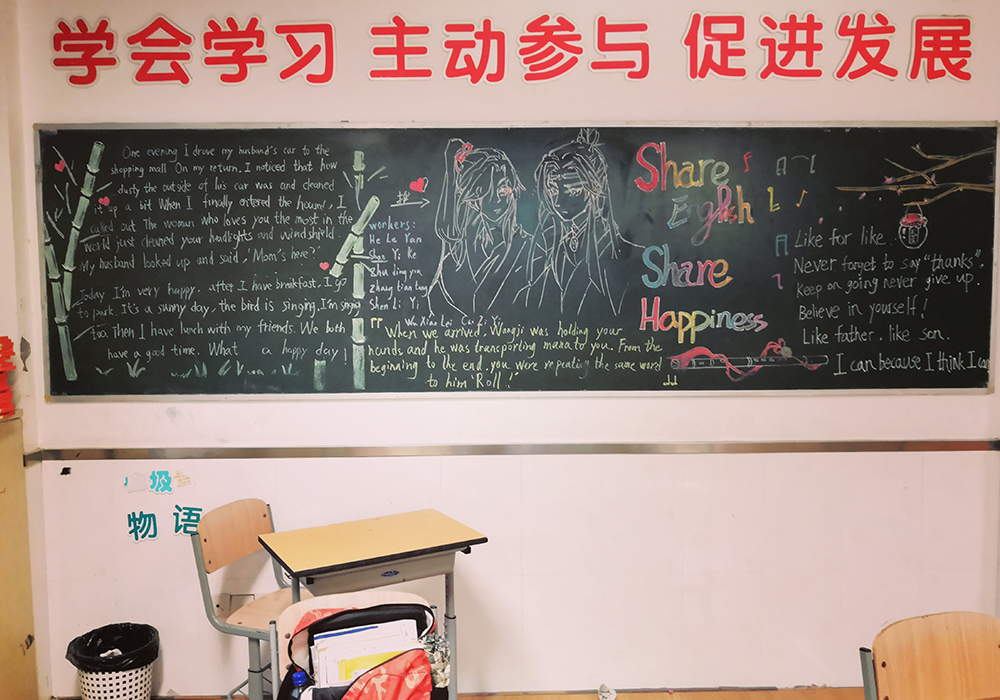 学会学习 主动参与 促进发展
One evening I drove my husband's car to the
shopping mall. On my return, I noticed that how
dusty the outside of his car was and cleaned
it up a bit. When I finally entered the house, I
called out "The woman who loves you the most in the
world just cleaned your headlights and windshield.
My husband looked up and said, "Mom's here?"
Today I'm very happy. after I have breakfast, I go
to park. It's a sunny day, the bird is singing, I'm singing
too. Then I have lunch with my friends. We both
have a good time. What a happy day!
workers:
He Le Yan
Shao Yi Ke
Zhu ding
Zhang tian
Shen Li Yi
Wu Xiao Cai Zi Yi
"When we arrived, Wangji was holding your
hands and he was transporting mana to you. From the
beginning to the end, you were repeating the same word
to him 'Roll!'
Share
English
Share
Happiness
Like for like.
Never forget to say "thanks".
keep on going never give up.
Believe in yourself!
Like father, like son.
I can because I think I can
圾
物语